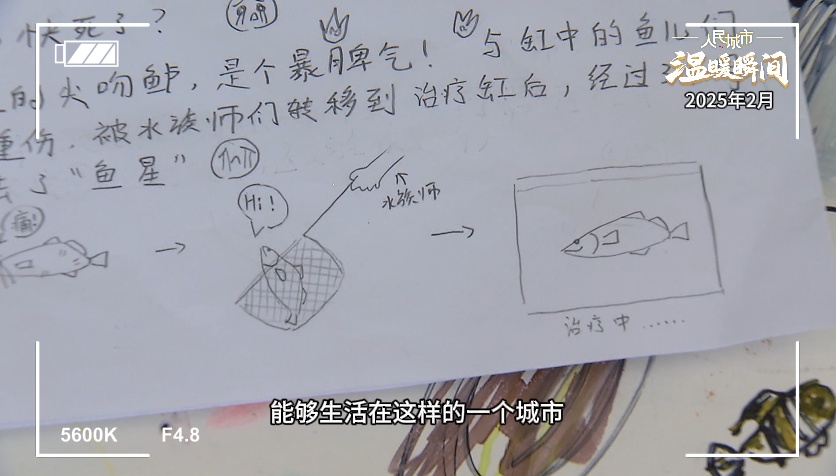 快死了?
的尖吻鲈,是个暴脾气!与缸中的鱼儿们
重伤.被水族师们转移到治疗缸后,经过
去了“鱼星”
痛!
Hi!
水族师
治疗中……
人民城市
温暖瞬间
2025年2月
能够生活在这样的一个城市
5600K F4.8